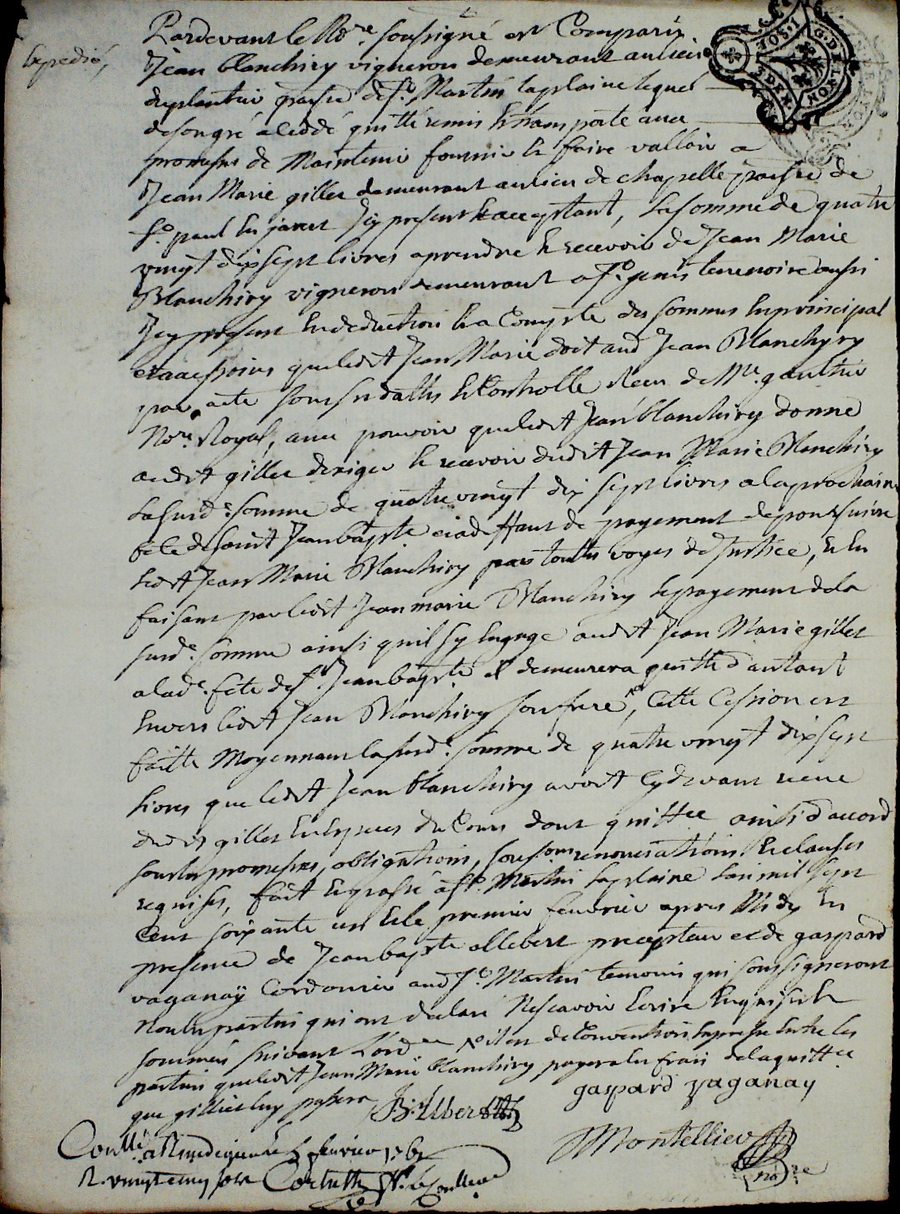 Expedié,
Pardevant le No.re soussigné est Comparu
Jean blanchiry vigneron demeurant au lieu
du plantier parsse de St. Martin laplaine lequel
de son gré a ceddé quitté remis et transporté avec
promesse de Maintenir fournir et faire valloir a
Jean Marie gillet demeurant au lieu de chapelle parsse de
St. paul en jarest Jcy present et acceptant, la somme de quatre
vingt dix sept livres aprendre et recevoir de Jean Marie
Blanchiry vigneron demeurant a St. genis terrenoire aussi
Jcy present en deduction et a Compte des sommes en principal
et accessoires que ledit Jean Marie doit aud Jean Blanchiry
par acte sous ses dattes et Controlle Receu de Me. gaultier
No.re Royal, avec pouvoir que ledit Jean blanchiry donne
audit gillet dexiger et recevoir dudit Jean Marie Blanchiry
la susd.e somme de quatre vingt dix sept livres a la prochaine
fete de saint Jean bapte et a deffaut de payement de poursuivre
ledit Jean Marie Blanchiry par toutes voyes de Justice, et en
faisant par ledit Jean marie Blanchiry le payement de la
susd.e somme ainsi quil sy engage audit Jean Marie gillet
a lad.e fete de St. Jean bapte il demeurera quitte d'autant
envers ledit Jean Blanchiry son frere, Cette Cession est
faitte Moyennant la susd.e somme de quatre vingt dix sept
livres que ledit Jean blanchiry a dit Cydevant receue
dudit gillet en especes du Cours dont quittce ainsi d'accord
sous les promesses, obligations, soumons renonciations et clauses
requises, fait et passé a St. Martin laplaine lan mil sept
Cent soixante un et le premier fevrier apres Midy en
presence de Jean bapte allebert precepteur et de gaspard
vaganay Cordonier aud St. Martin temoins qui soussigneront
non les parties qui ont declaré ne scavoir Ecrire Enquises et
sommées suivant l'ordce il est de Convention Expresse Entre les
parties que ledit Jean Marie blanchiry payera les frais de la quittce
que gillet luy passera
gaspard vaganay
Montellier
no.re
Coullé a Rivedegier le fevrier 1761
R. vingt cinq sols